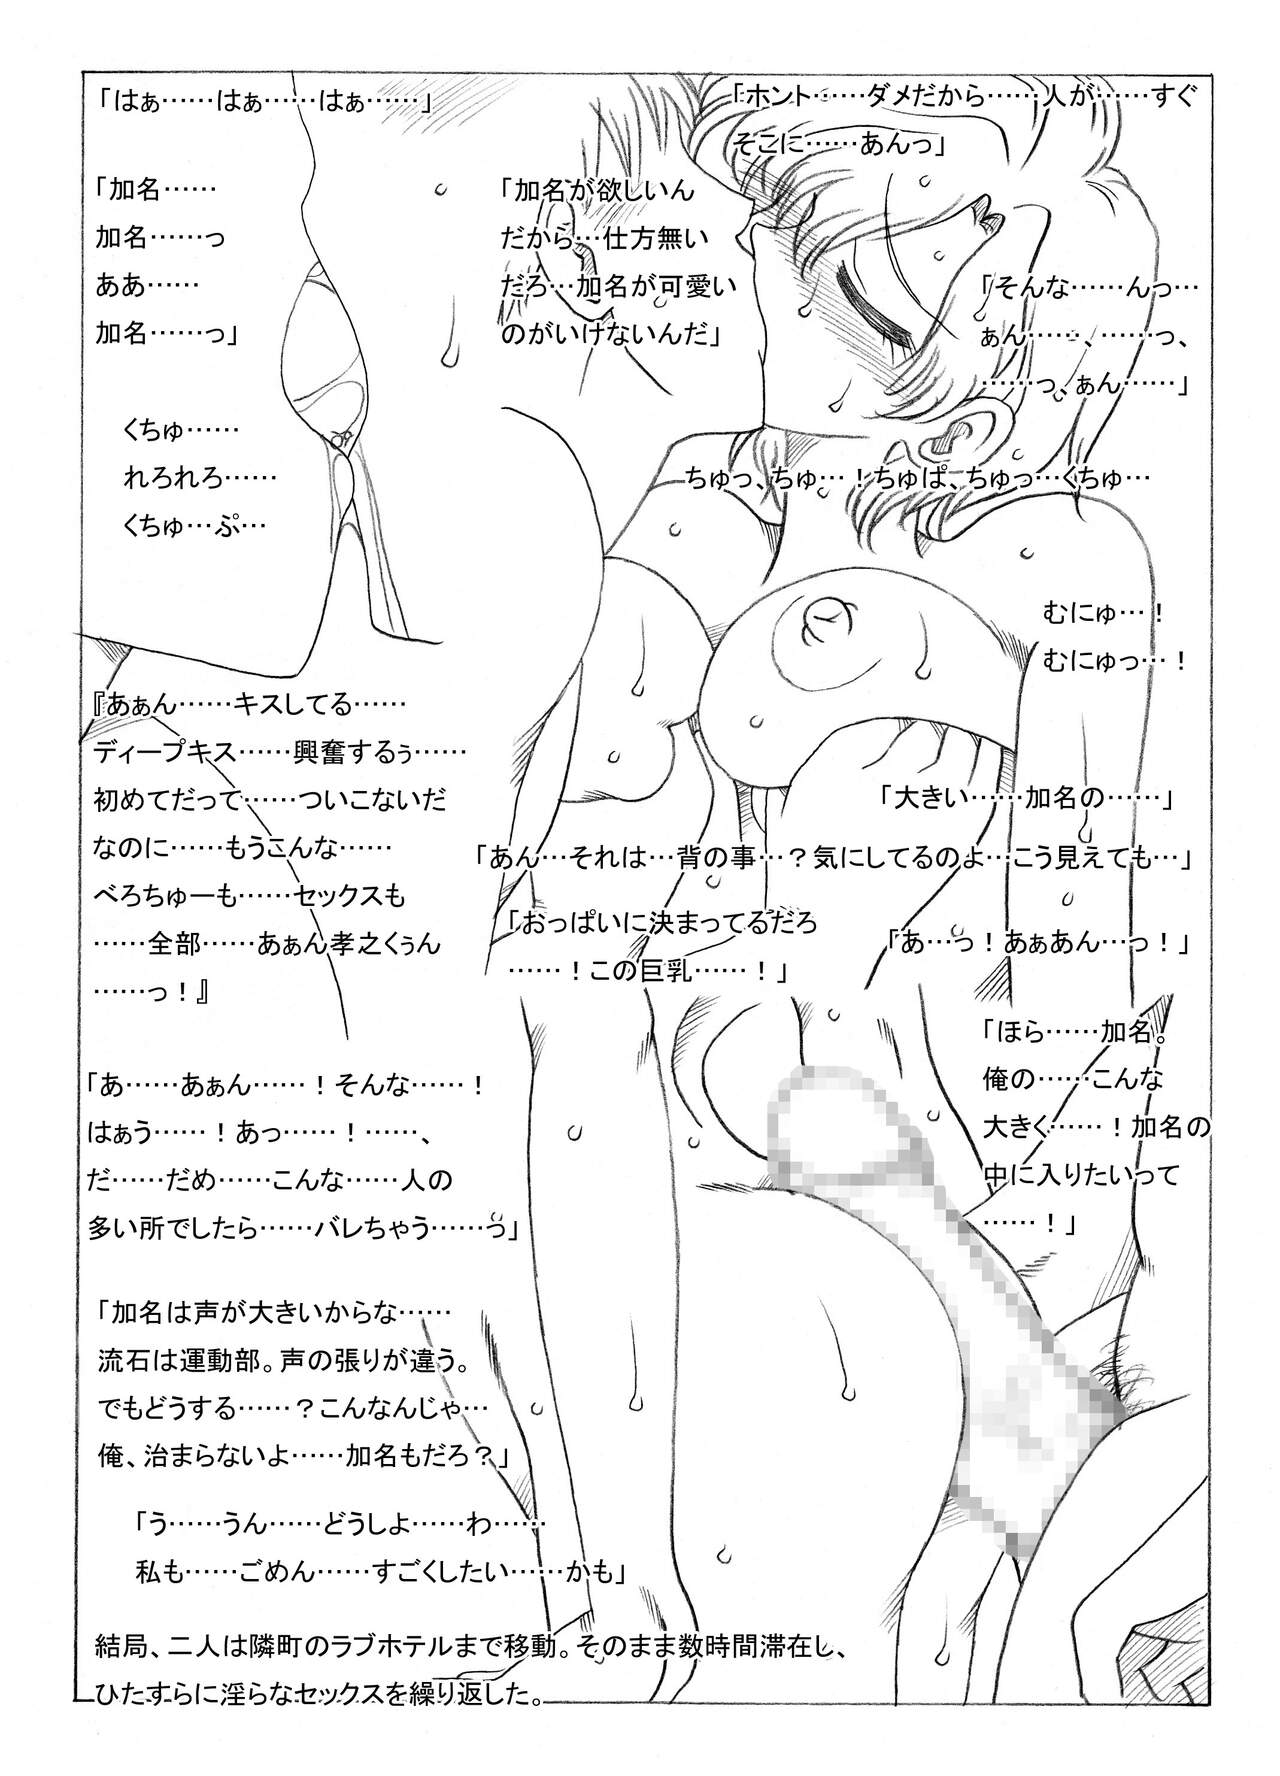 「はぁ……はぁ……はぁ……」
「ホント……ダメだから……人が……すぐ
そこに……あんっ」
「加名……
加名……っ
ああ……
加名……っ」
「加名が欲しいん
だから…仕方無い
だろ…加名が可愛い
のがいけないんだ」
「そんな……んっ…
ぁん……、……っ、
……っ、ぁん……」
くちゅ……
れろれろ……
くちゅ…ぷ…
ちゅっ、ちゅ…！ちゅぱ、ちゅっ…くちゅ…
むにゅ…！
むにゅっ…！
『あぁん……キスしてる……
ディープキス……興奮するぅ……
初めてだって……ついこないだ
なのに……もうこんな……
べろちゅーも……セックスも
……全部……あぁん孝之くぅん
……っ！』
「大きい……加名の……」
「あん…それは…背の事…？気にしてるのよ…こう見えても…」
「おっぱいに決まってるだろ
……！この巨乳……！」
「あ…っ！あぁあん…っ！」
「ほら……加名。
俺の……こんな
大きく……！加名の
中に入りたいって
……！」
「あ……あぁん……！そんな……！
はぁう……！あっ……！……、
だ……だめ……こんな……人の
多い所でしたら……バレちゃう……っ」
「加名は声が大きいからな……
流石は運動部。声の張りが違う。
でもどうする……？こんなんじゃ…
俺、治まらないよ……加名もだろ？」
「う……うん……どうしよ……わ……
私も……ごめん……すごくしたい……かも」
結局、二人は隣町のラブホテルまで移動。そのまま数時間滞在し、
ひたすらに淫らなセックスを繰り返した。